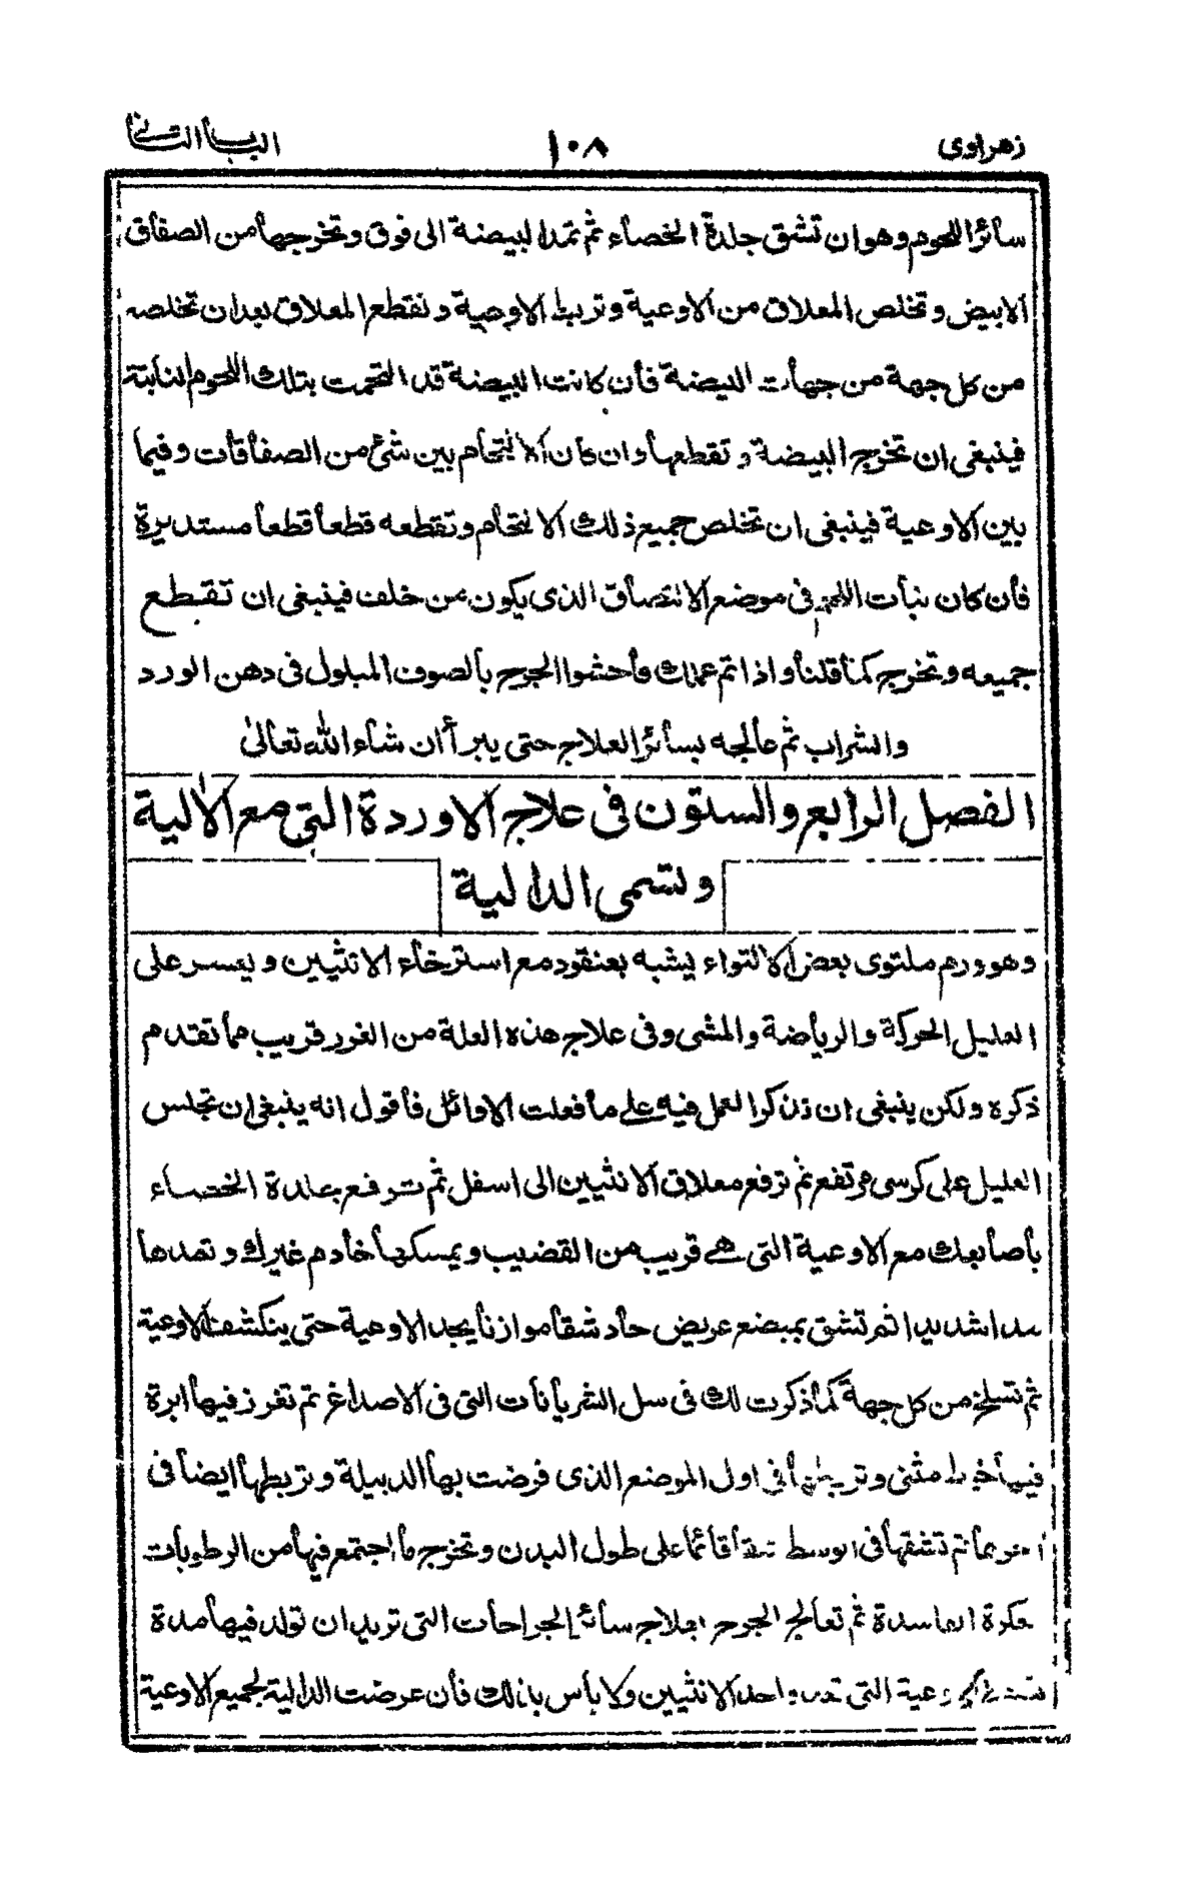 زهراوى ١٠٨ الباب الثانى
سائر اللحوم وهو ان تشق جلدة الخصاء ثم تمد البيضة الى فوق وتخرجها من الصفاق
الابيض وتخلص المعلاق من الاوعية وتربط الاوعية وتقطع المعلاق بعد ان تخلصه
من كل جهة من جهات البيضة فان كانت البيضة قد التحمت بتلك اللحوم النابتة
فينبغى ان تخرج البيضة وتقطعها وان كان الالتحام بين شئ من الصفاقات وفيما
بين الاوعية فينبغى ان تخلص جميع ذلك الالتحام وتقطعه قطعا قطعا مستديرة
فان كان نبات اللحم فى موضع الالتصاق الذى يكون من خلف فينبغى ان تقطع
جميعه وتخرج كما قلنا واذا تم عملك فاحشوا الجرح بالصوف المبلول فى دهن الورد
والشراب ثم عالجه بسائر العلاج حتى يبرأ ان شاء الله تعالىٰ
الفصل الرابع والستون فى علاج الاوردة التى مع الالية
وتسمى الدالية
وهو ورم ملتوى بعض الالتواء يشبه بعنقود مع استرخاء الانثيين ويعسر على
العليل الحركة والرياضة والمشى وفى علاج هذه العلة من الغرر قريب مما تقدم
ذكره ولكن ينبغى ان نذكر العمل فيه على ما فعلت الاوائل فاقول انه ينبغى ان تجلس
العليل على كرسى مرتفع ثم ترفع معلاق الانثيين الى اسفل ثم ترفع جلدة الخصاء
باصابعك مع الاوعية التى هى قريب من القضيب ويمسكها خادم غيرك وتمدها
مدا شديدا ثم تشق بمبضع عريض حاد شقا موازنا يجد الاوعية حتى ينكشف الاوعية
ثم تسلخ من كل جهة كما ذكرت لك فى سل الشريانات التى فى الاصداغ ثم تغرز فيها ابرة
فيها خيط مثنى وتربطها فى اول الموضع الذى فرضت بها الدبيلة وتربطها ايضا فى
اخرها ثم تشقها فى الوسط شقا قائما على طول البدن وتخرج ما اجتمع فيها من الرطوبات
عكرة الفاسدة ثم تعالج الجرح بعلاج سائر الجراحات التى تريد ان تولد فيها مدة
الاوعية التى تغذى واحد الانثيين ولا بأس بذلك فان عرضت الدالية لجميع الاوعية